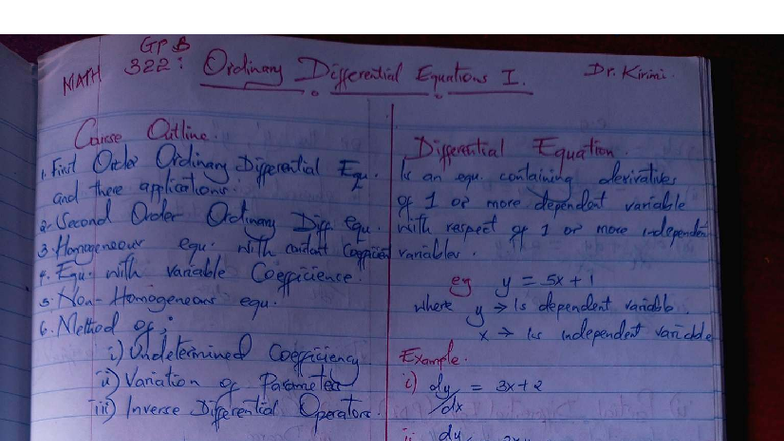 GP B
MATH 322: Ordinary Differential Equations I. Dr. Kirimi.
Course Outline.
1. First Order Ordinary Differential Equ.
and there applications.
2. Second Order Ordinary Diff equ.
3. Homogeneour equ. with contant Coefficient
4. Equ. with variable Coefficience.
5. Non-Homogeneous equ.
6. Method of;
i) Undetermined Coefficiency
ii) Variation of Parameter
iii) Inverse Differential Operators.
Differential Equation.
Is an equ. containing derivatives
of 1 or more dependent variable
with respect of 1 or more independent
variables.
eg y = 5x + 1
where y → Is dependent variable.
x → Is independent variable
Example.
i) dy/dx = 3x + 2
ii dy